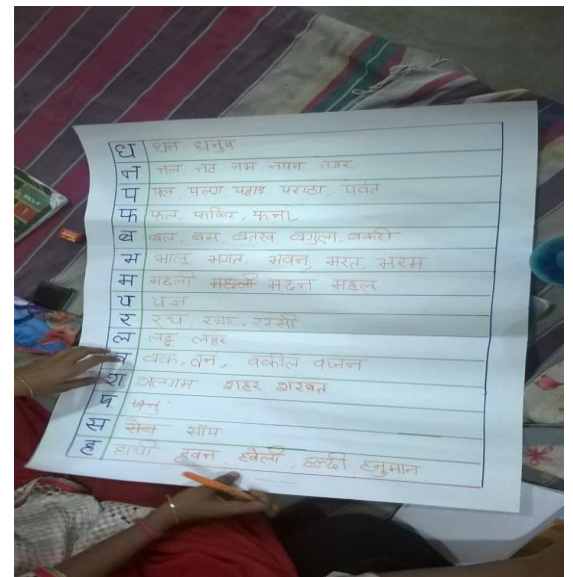 ध धन धनुष
न नल, नट नभ नयन नगर
प पल, पहाड पराठा, पर्वत
फ फल, फकिर, फना,
ब बल, बस, बतख, बगुला, बकरी
भ भालू भगत, भवन, भरत, भरम
म मछली मदन महल
य यज्ञ
र रथ, रबर, रस्सी
ल लट्टू लहर
व वक, वन, वकील वजन
श शलगम शहर शरबत
ष
स सेब साँप
ह हाथी हवन हवेली, हल्दी हनुमान